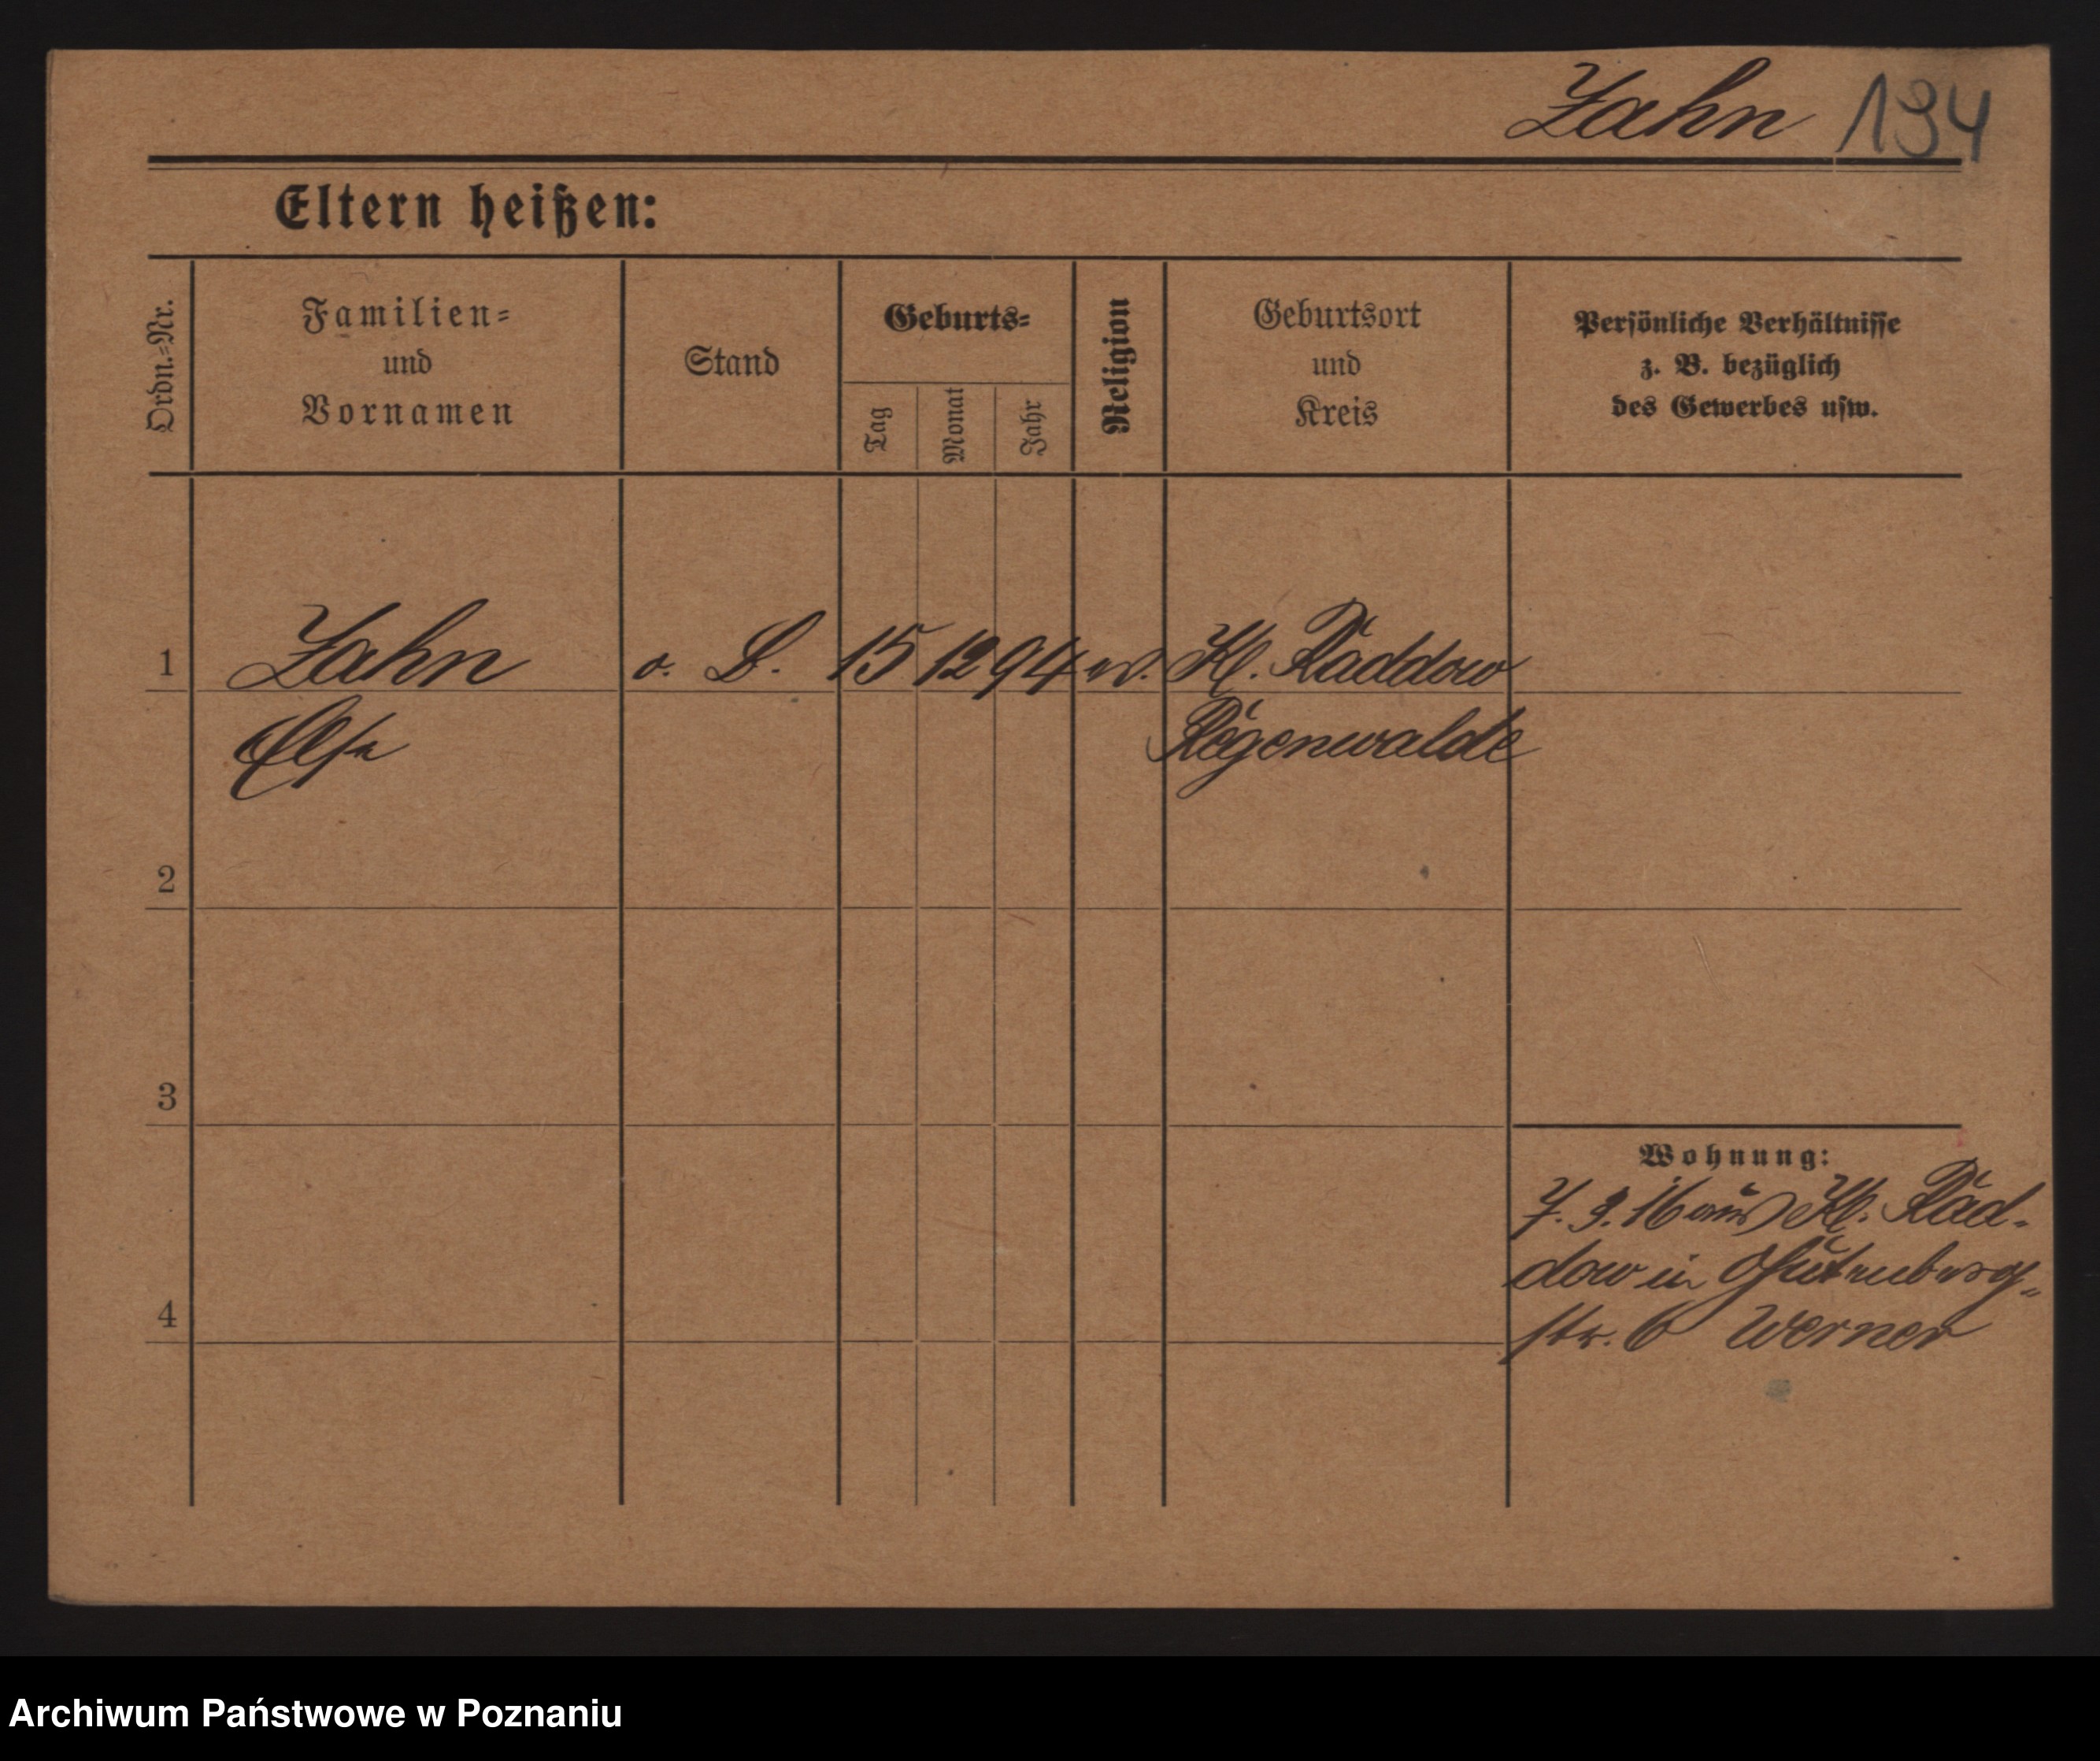 Zahn 194
Eltern heißen:
Ordn.=Nr.
Familien=
und
Vornamen
Stand
Geburts=
Tag
Monat
Jahr
Religion
Geburtsort
und
Kreis
Persönliche Verhältnisse
z. B. bezüglich
des Gewerbes usw.
1 Zahn o. B. 15 12 94 ev. Kl. Raddow
Else Regenwalde
2
3
Wohnung:
7. 3. 16 aus Kl. Rad-
dow in Gutenberg-
4
str. 6 Werner
Archiwum Państwowe w Poznaniu